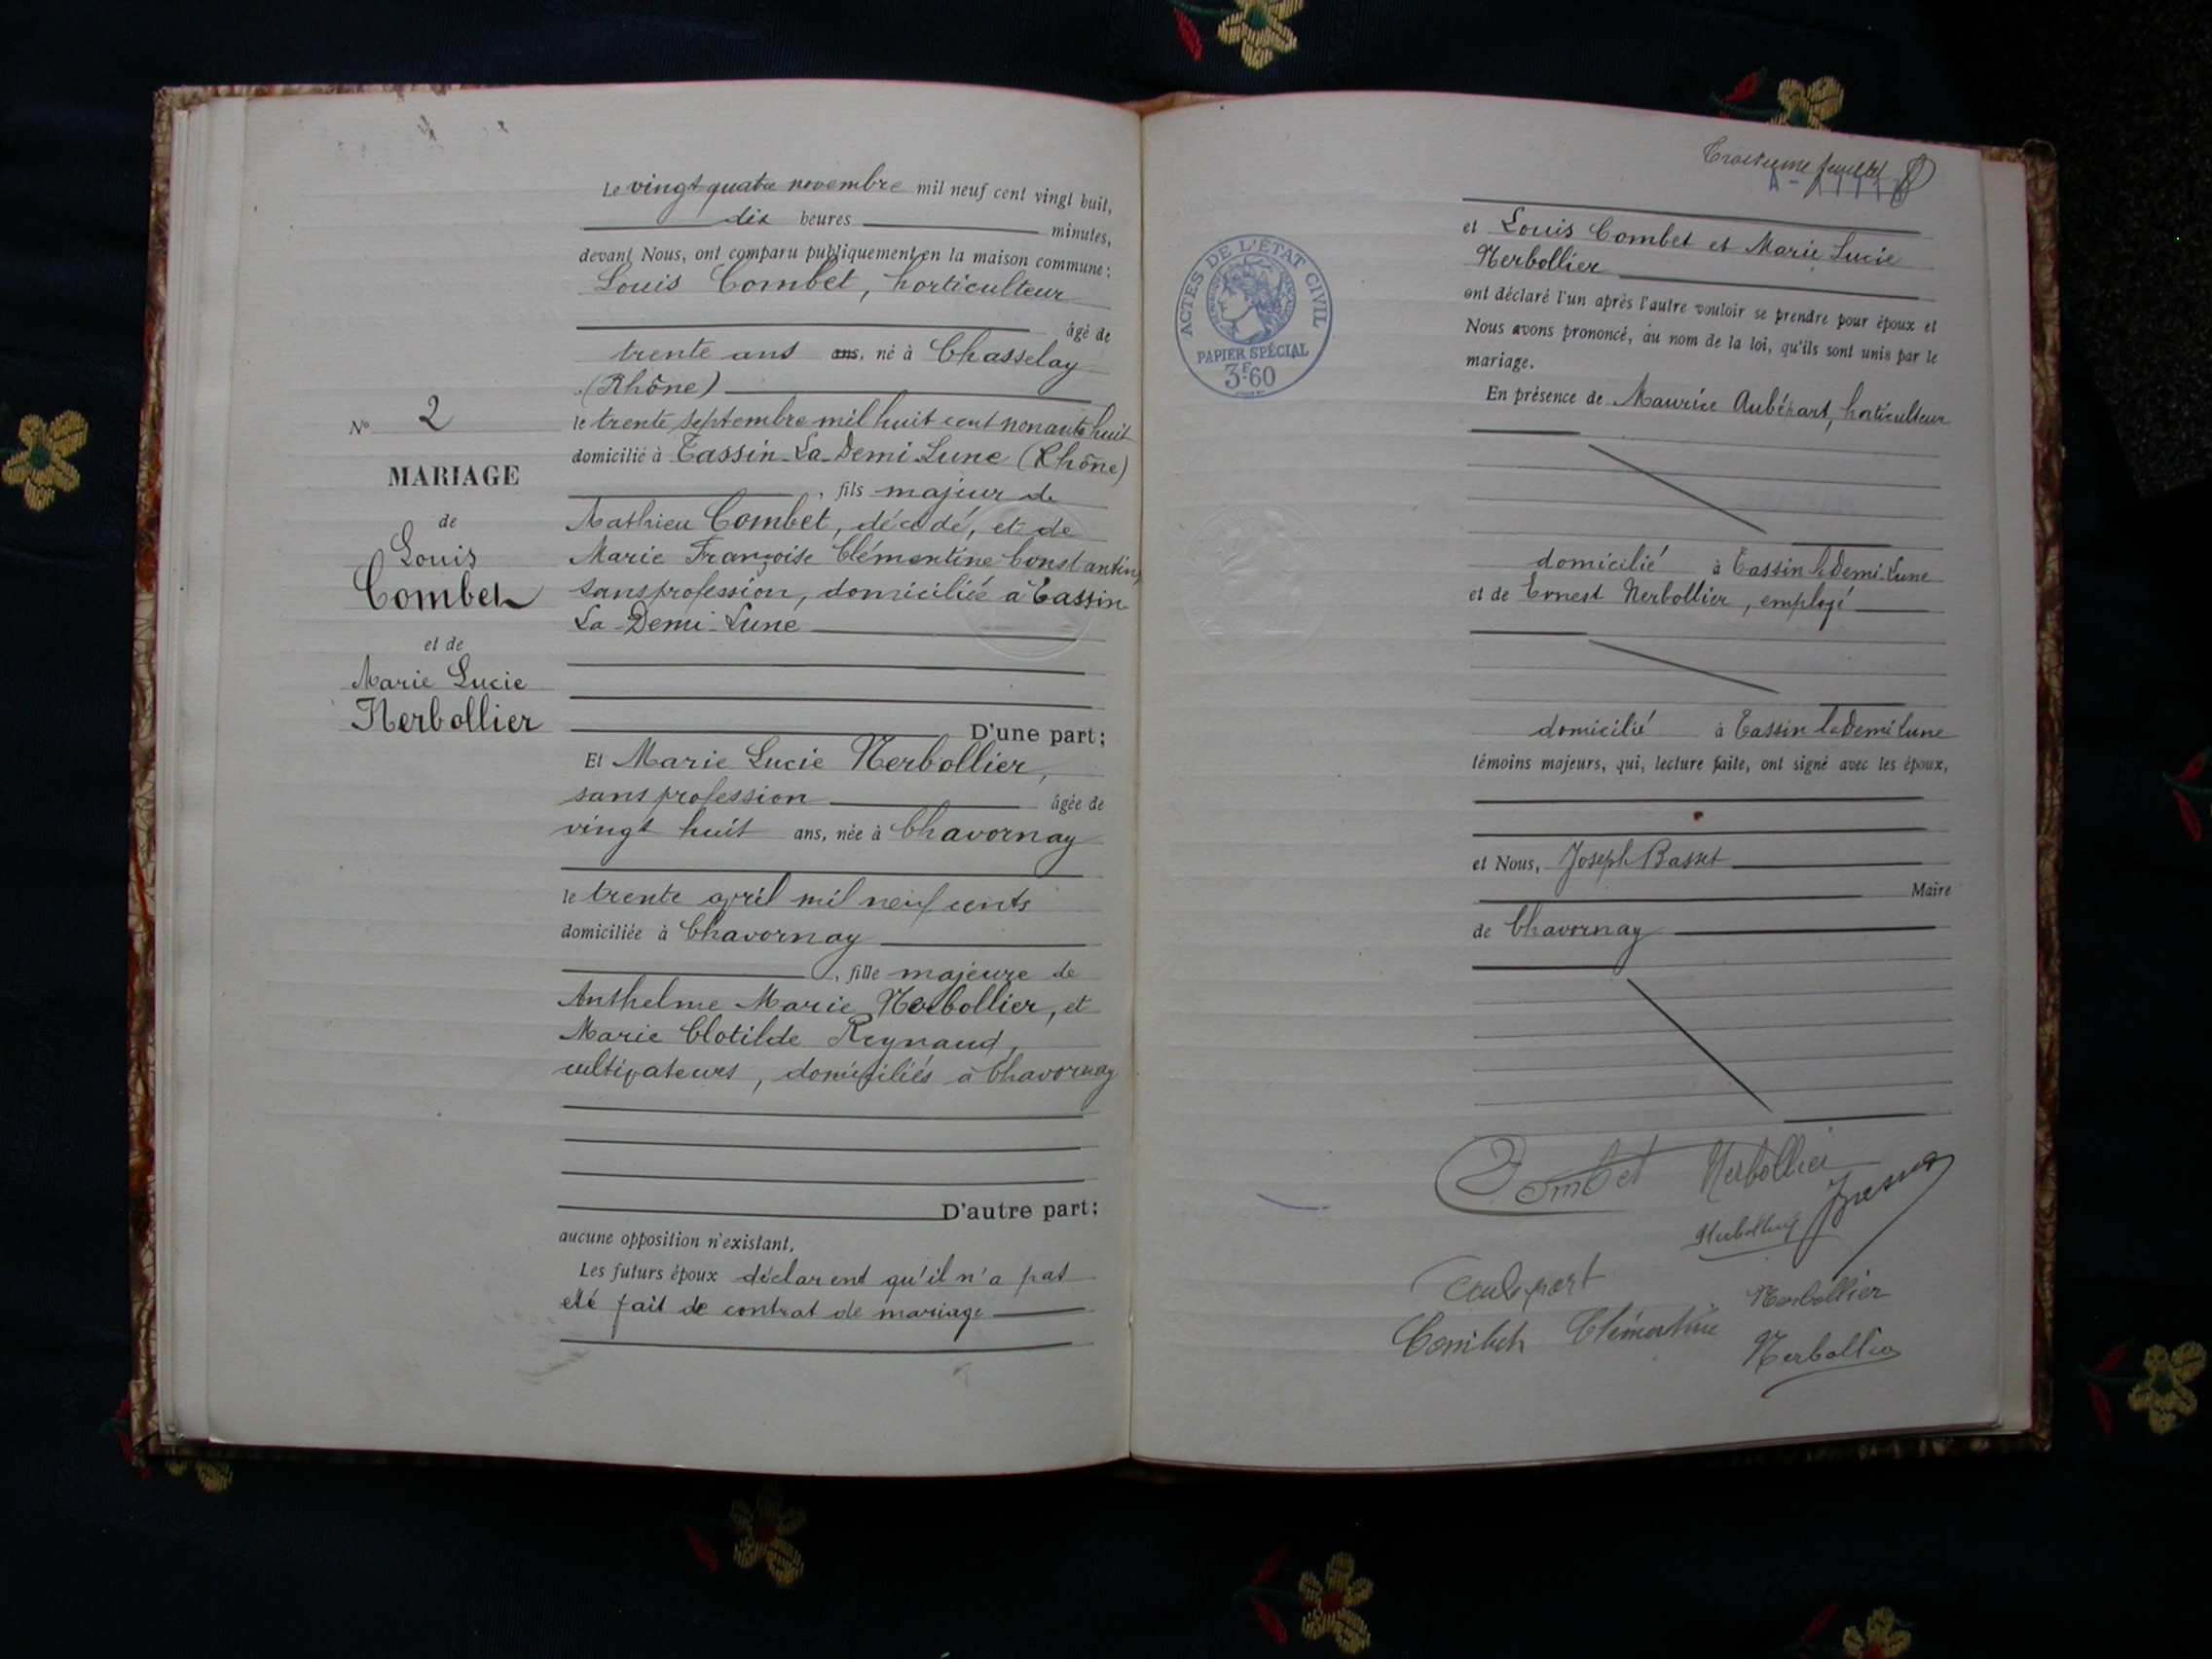 Le vingt quatre novembre mil neuf cent vingt huit,
dix heures minutes,
devant Nous, ont comparu publiquement en la maison commune:
Louis Combet, horticulteur
âgé de
trente ans ans, né à Chasselay
(Rhône)
le trente septembre mil huit cent nonante huit
domicilié à Tassin-La-Demi-Lune (Rhône)
, fils majeur de
Mathieu Combet, décédé, et de
Marie Françoise Clémentine Constantin,
sans profession, domiciliée à Tassin
La-Demi-Lune
D'une part;
Nº 2
MARIAGE
de
Louis
Combet
et de
Marie Lucie
Nerbollier
Et Marie Lucie Nerbollier,
sans profession âgée de
vingt huit ans, née à Chavornay
le trente avril mil neuf cents
domiciliée à Chavornay
, fille majeure de
Anthelme Marie Nerbollier, et
Marie Clotilde Reynaud,
cultivateurs, domiciliés à Chavornay
D'autre part;
aucune opposition n'existant,
Les futurs époux déclarent qu'il n'a pas
été fait de contrat de mariage
Troisième feuillet
ACTES DE L'ÉTAT CIVIL
PAPIER SPÉCIAL
3F60
et Louis Combet et Marie Lucie
Nerbollier
ont déclaré l'un après l'autre vouloir se prendre pour époux et
Nous avons prononcé, au nom de la loi, qu'ils sont unis par le
mariage.
En présence de Maurice Aubépart, horticulteur
domicilié à Tassin la Demi-Lune
et de Ernest Nerbollier, employé
domicilié à Tassin la Demi Lune
témoins majeurs, qui, lecture faite, ont signé avec les époux,
et Nous, Joseph Basset
Maire
de Chavornay
Combet Nerbollier
Nerbollier
Combet Clémentine
Nerbollier
Nerbollier